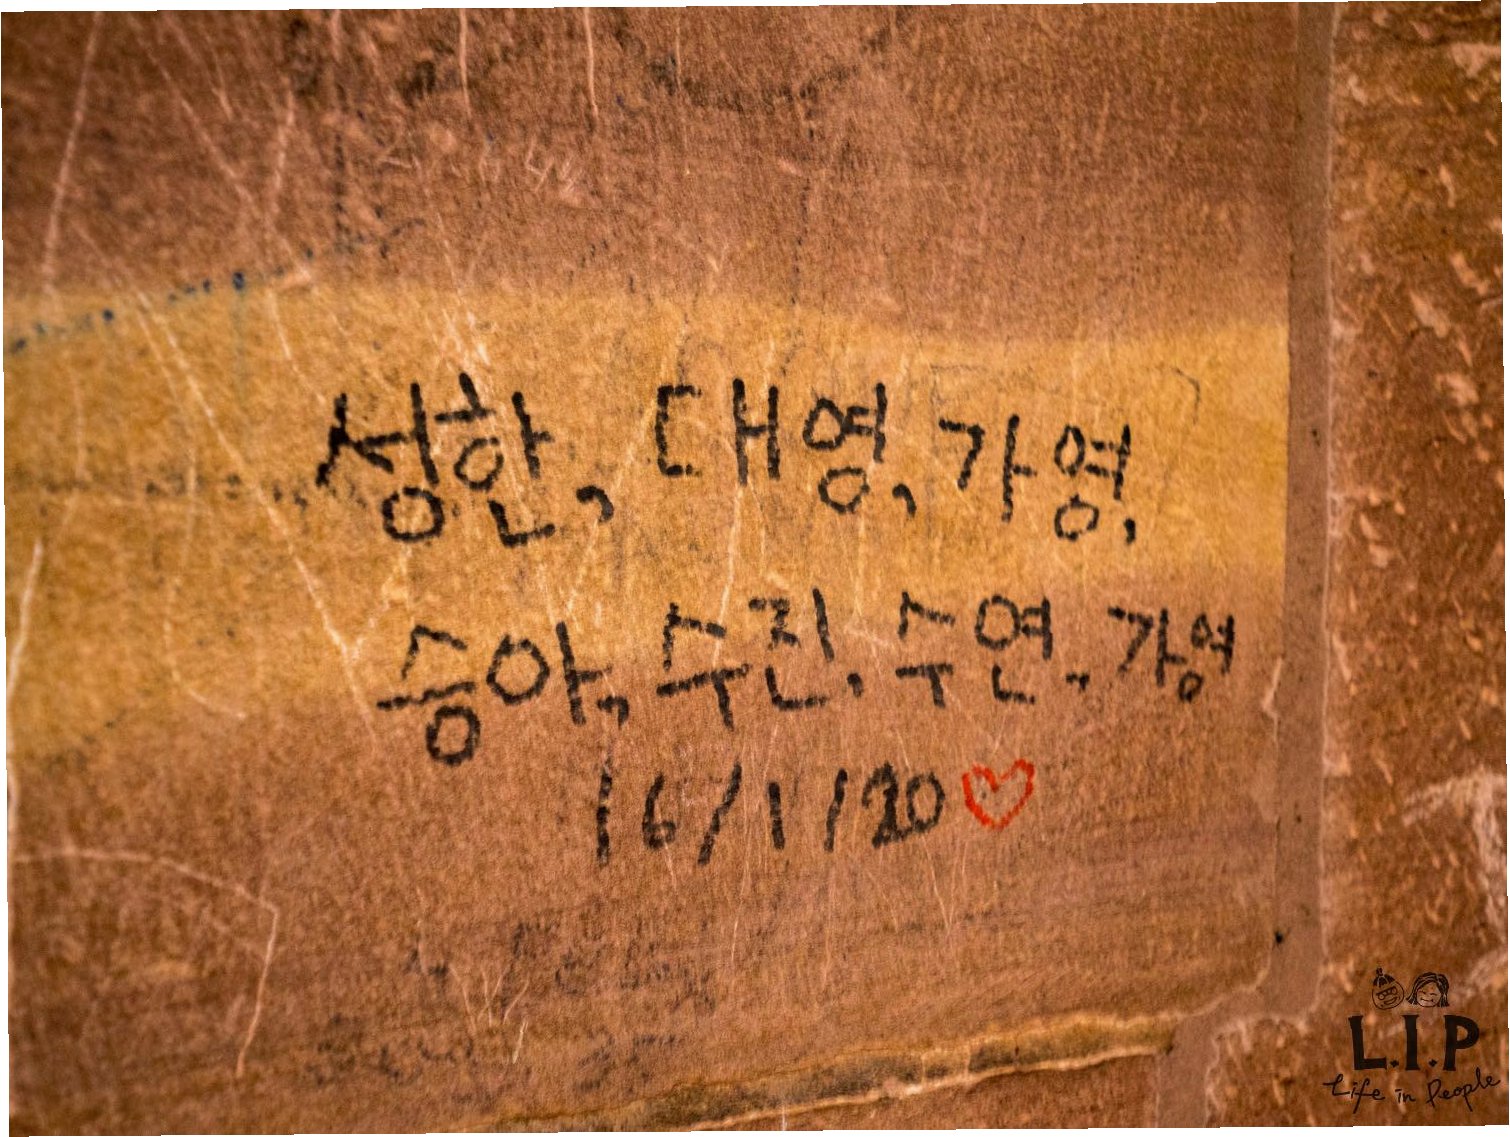 성한, 대영, 가영,
승아, 수진. 수연. 가영
16/1/20♡
L.I.P
Life in People